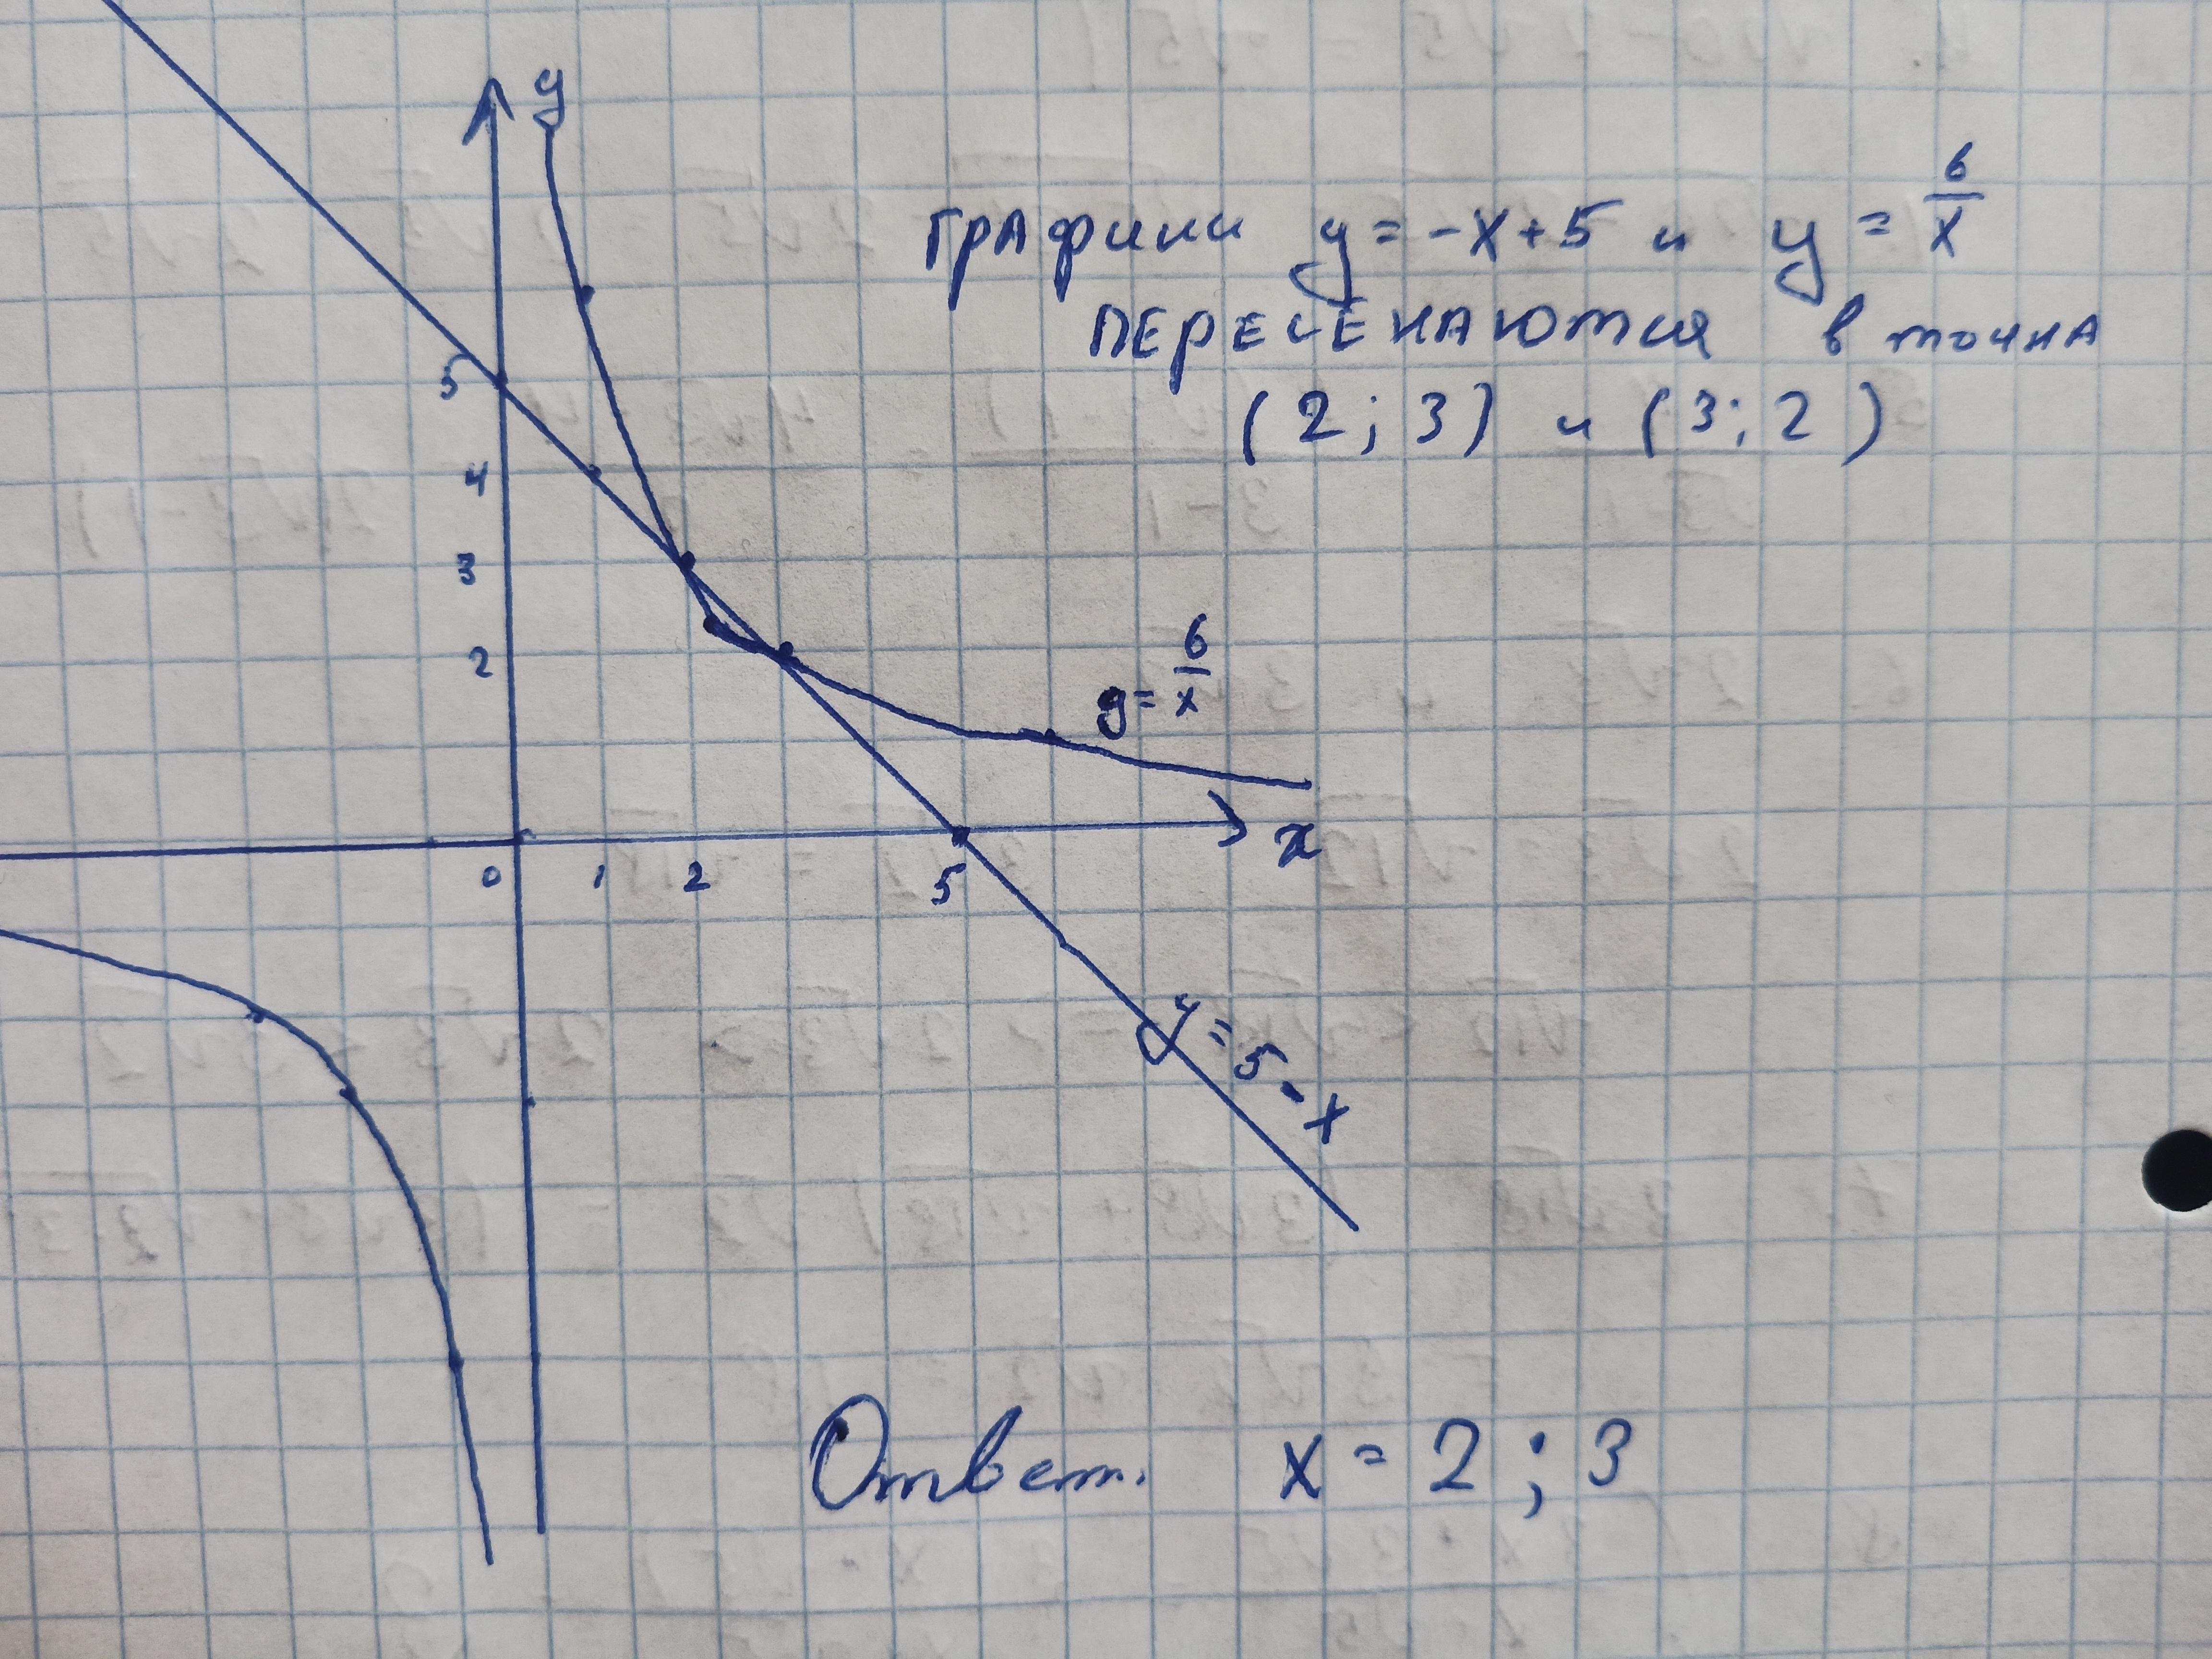 y
Графики y = -x + 5 и y = 6/x
пересекаются в точка
(2; 3) и (3; 2)
5
4
3
2
y = 6/x
x
0 1 2 5
y = 5 - x
Ответ. x = 2 ; 3